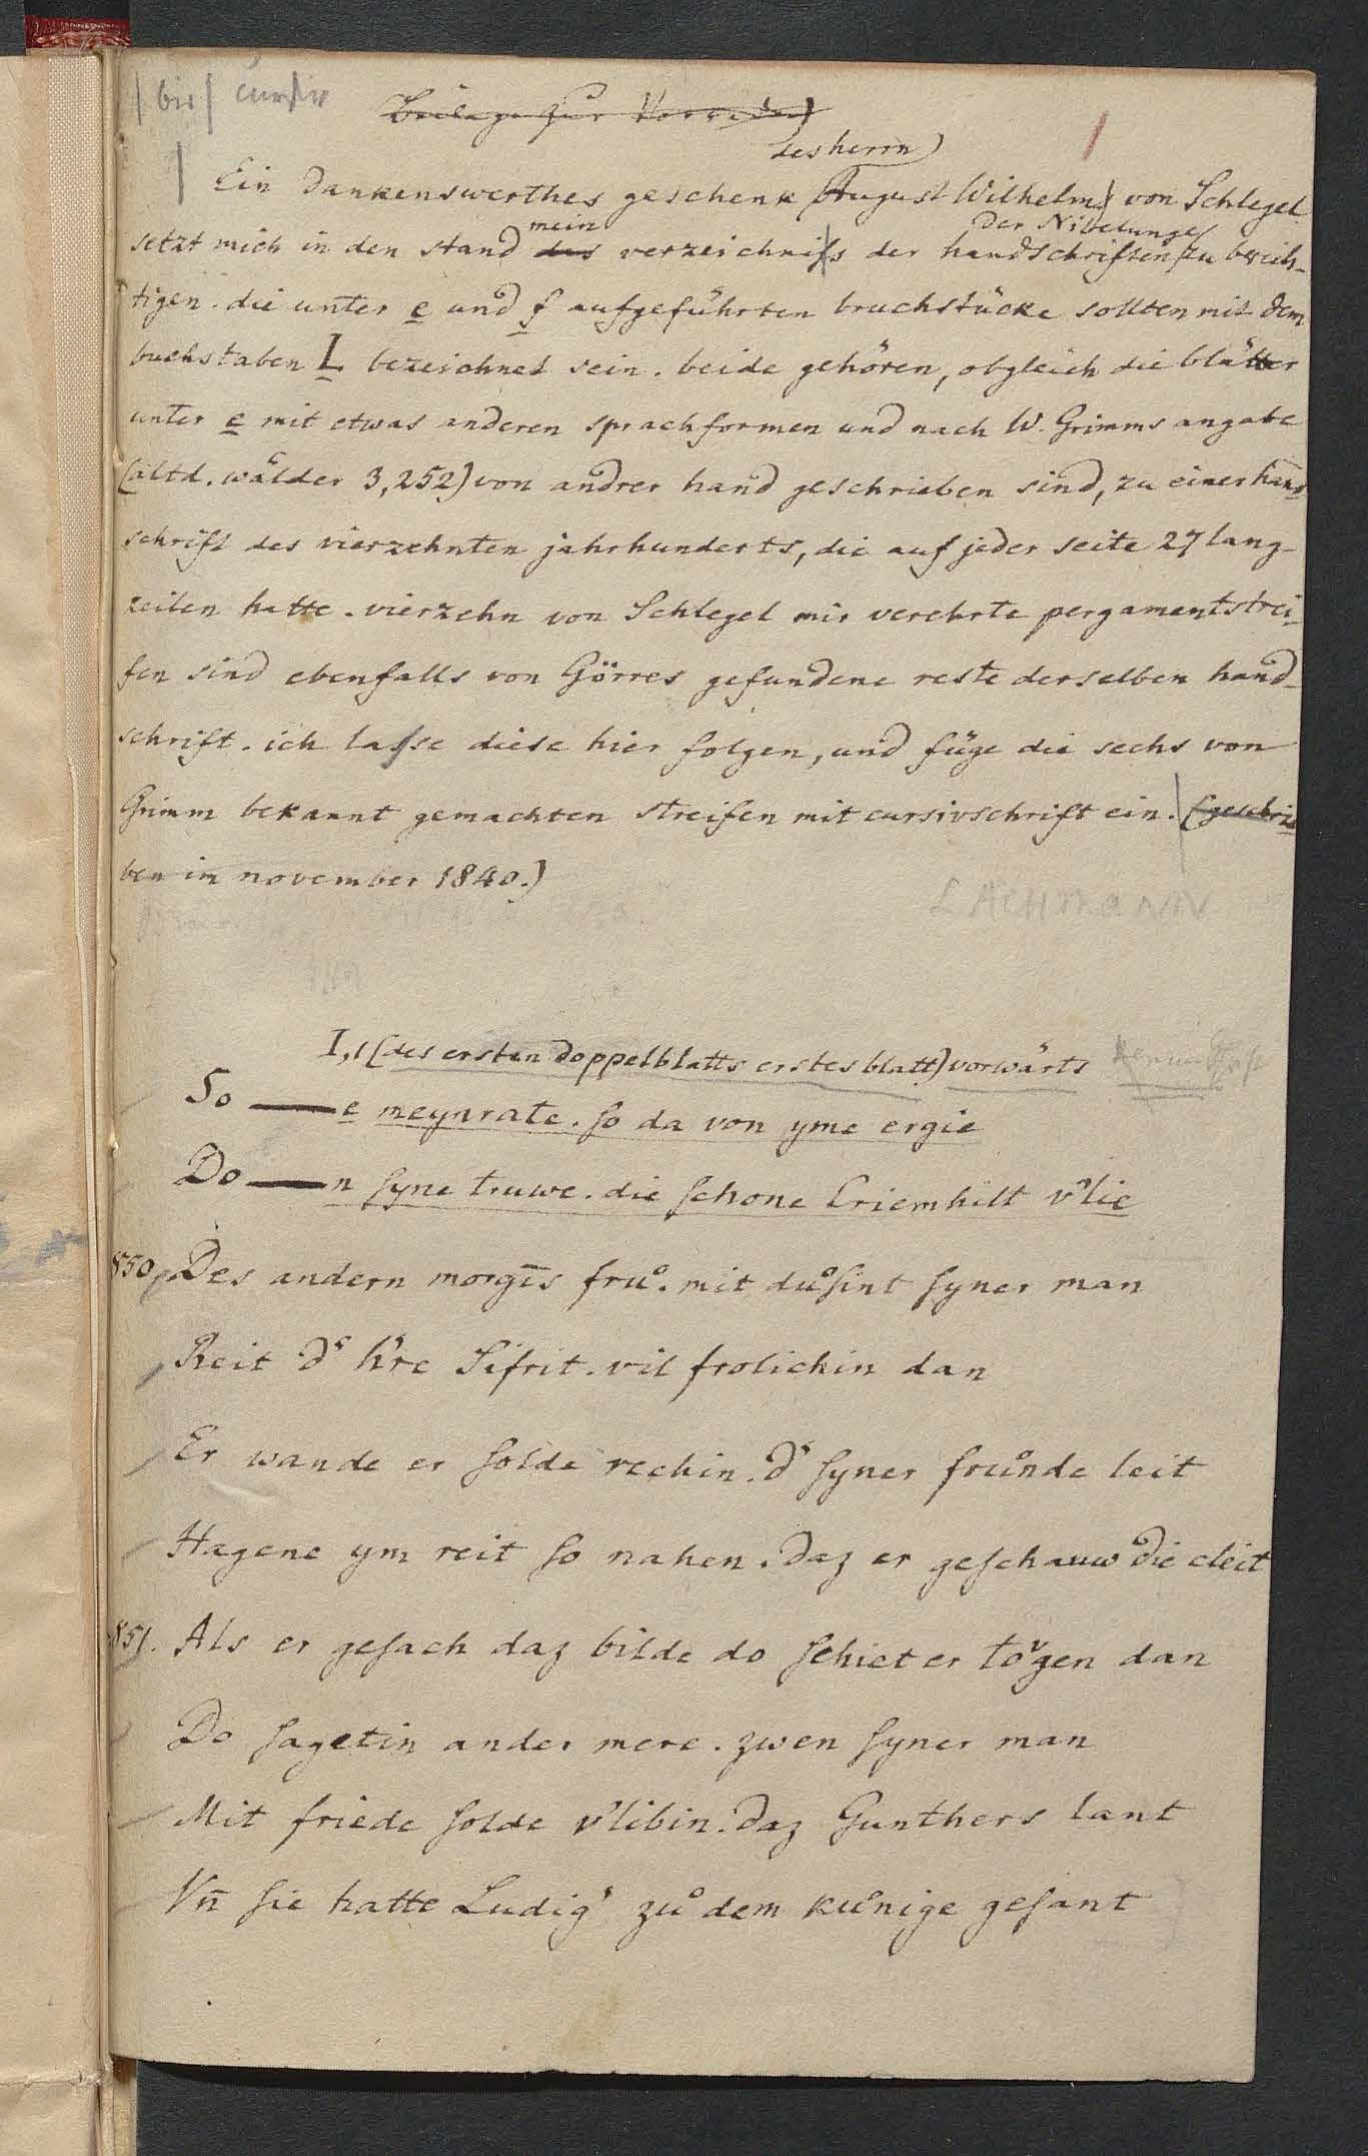 bis cursiv
Beilage zur Vorrede)
des herrn)
Ein dankenswerthes geschenk August Wilhelms von Schlegel
mein der Nibelunge
setzt mich in den stand das verzeichnis der handschriften zu berich-
tigen. die unter e und f aufgeführten bruchstücke sollten mit dem
buchstaben L bezeichnet sein. beide gehören, obgleich die blätter
unter e mit etwas anderen sprachformen und nach W. Grimms angabe
(altd. wälder 3,252) von andrer hand geschrieben sind, zu einer hand
schrift des vierzehnten jahrhunderts, die auf jeder seite 27 lang-
zeilen hatte. vierzehn von Schlegel mir verehrte pergamentstrei-
fen sind ebenfalls von Görres gefundene reste derselben hand-
schrift. ich lasse diese hier folgen, und füge die sechs von
Grimm bekannt gemachten streifen mit cursivschrift ein. (geschrie
ben im november 1840.)
LACHMANN
I,1 (des ersten doppelblatts erstes blatt) vorwärts
So —— e meynrate. ſo da von yme ergie
Do —— n ſyne truwe. die ſchone Criemhilt v'lie
850. Des andern morgīs fruͦ. mit duͦſint ſyner man
Reit d' h're Sifrit. vil frolichin dan
Er wande er ſolde rechin. d' ſyner fruͦnde leit
Hagene ym reit ſo nahen. daz er geſchauw die cleit
851. Als er geſach daz bilde do ſchiet er toͮgen dan
Do ſagetin ander mere. zwen ſyner man
Mit friede ſolde v'libin. daz Gunthers lant
Vn̄ ſie hatte Ludig' zuͦ dem kuͦnige geſant